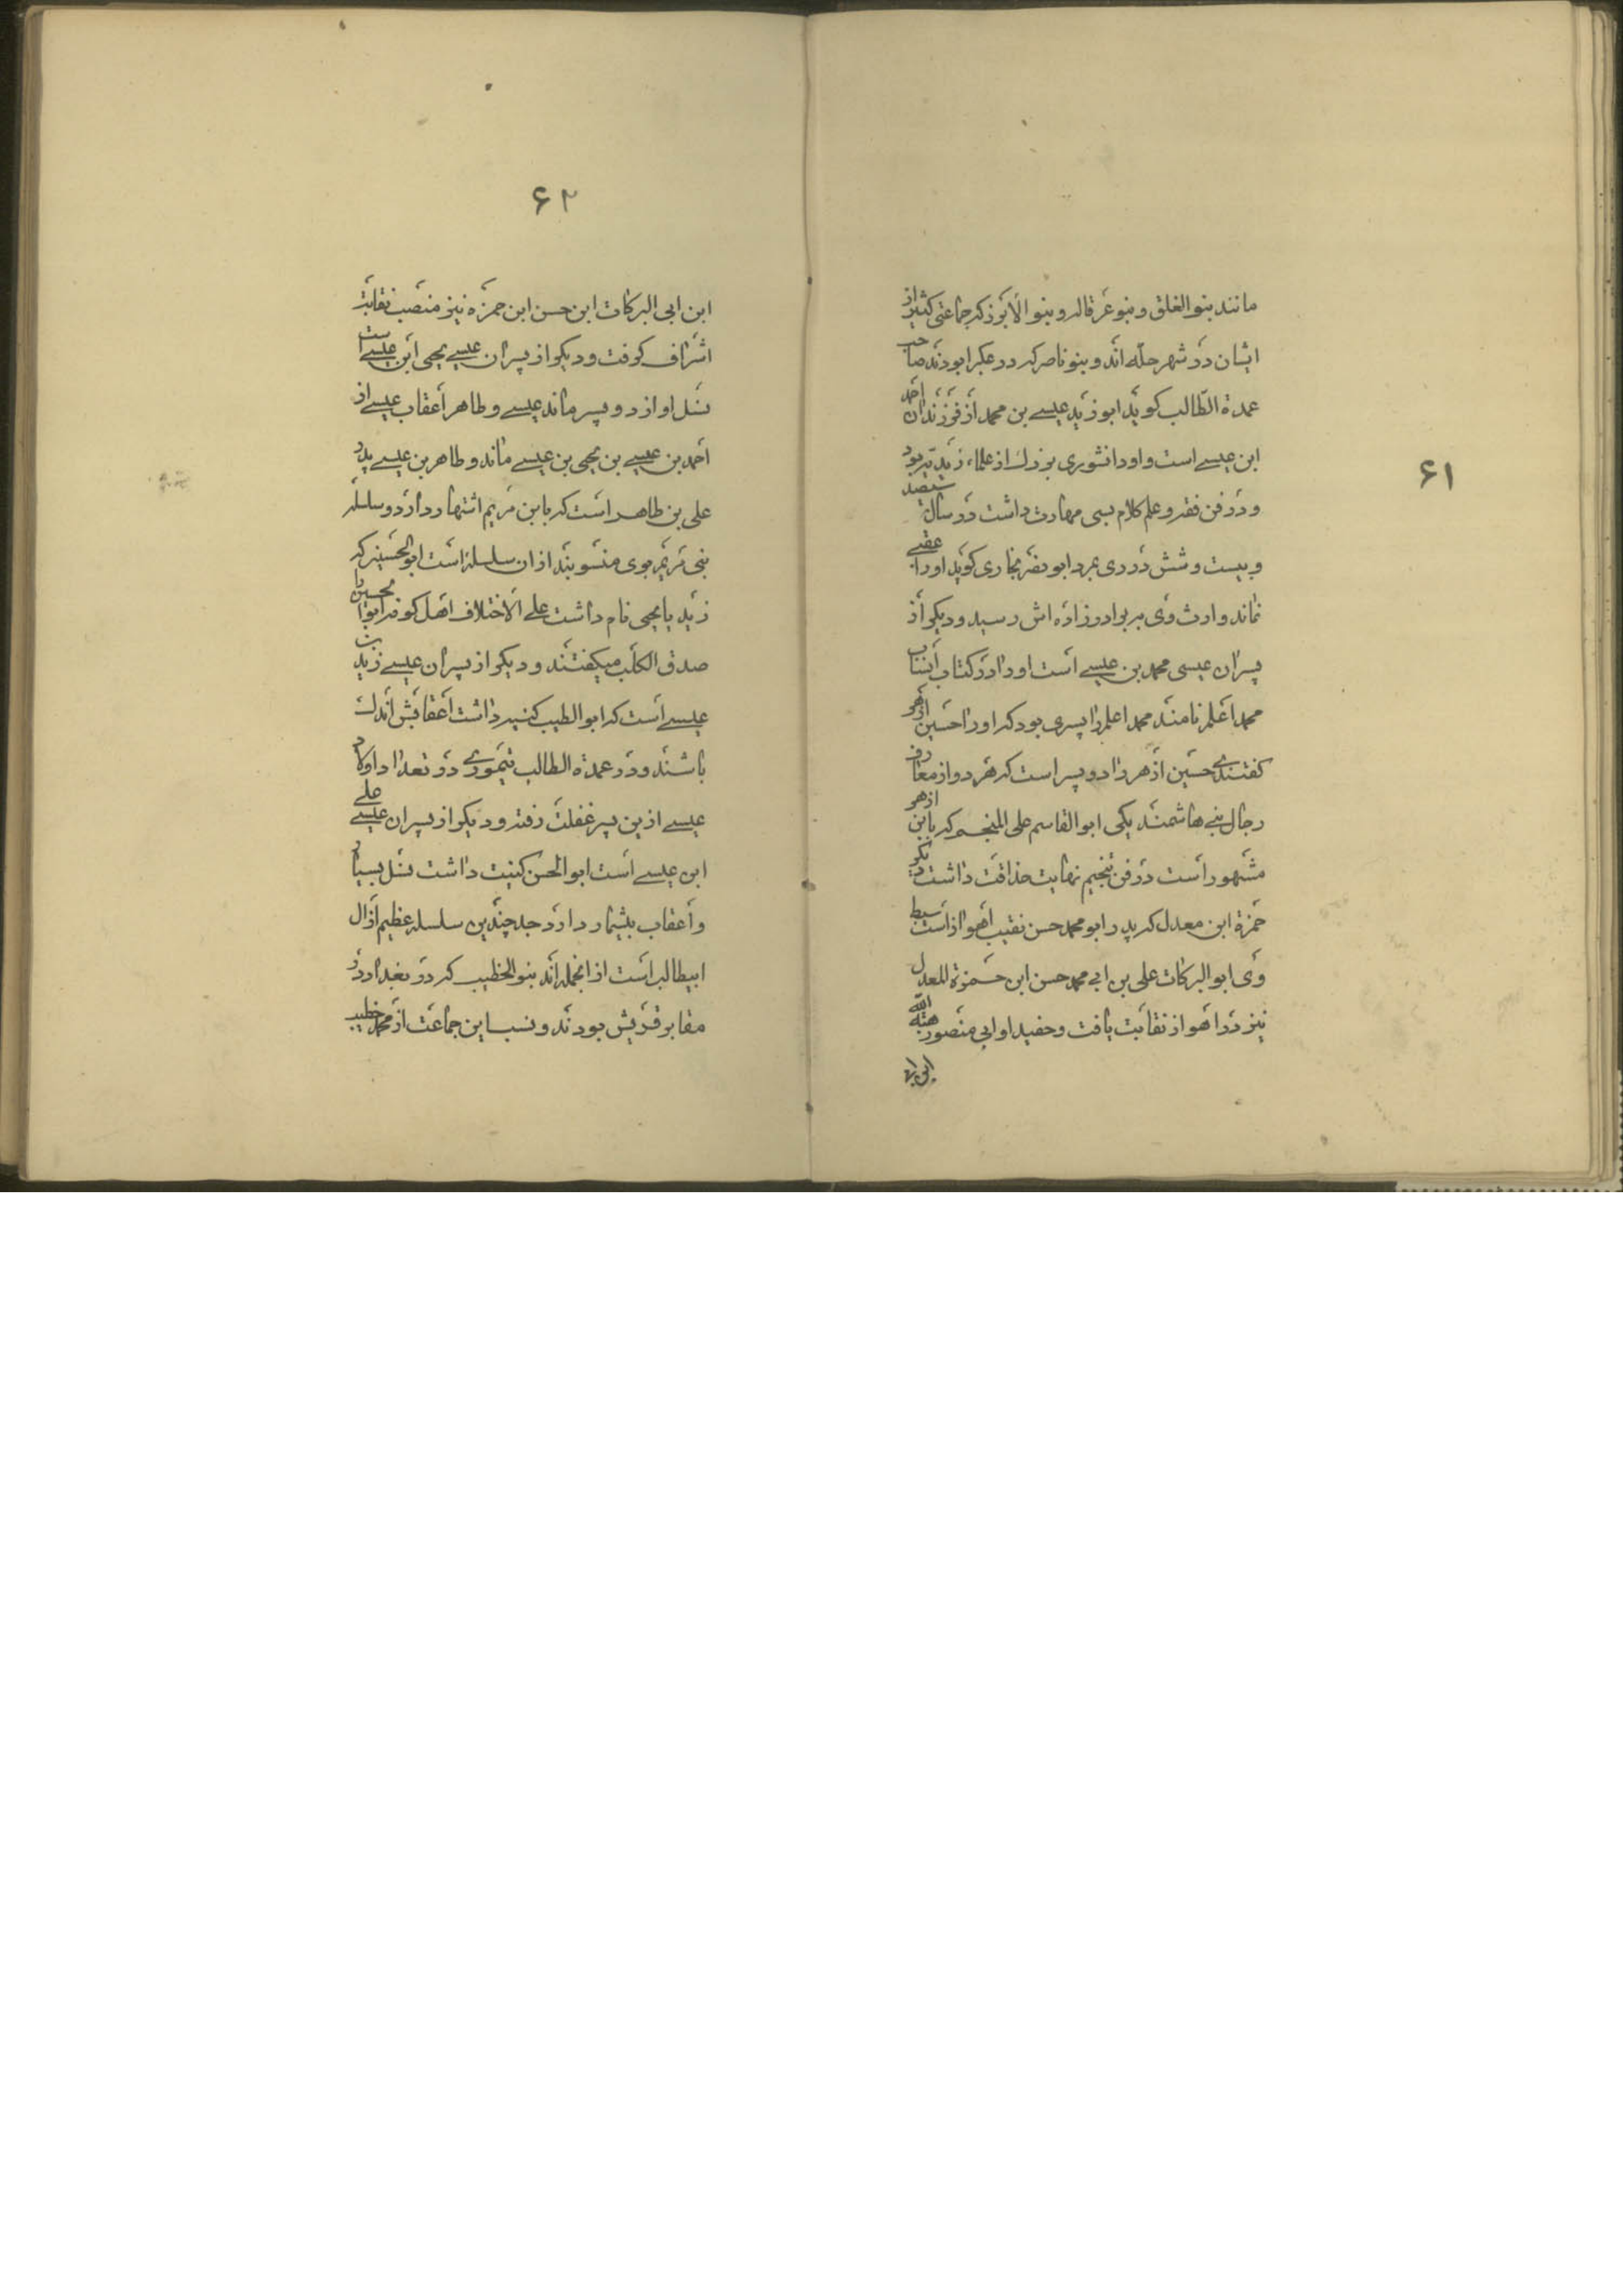 ۶۱
مانند بنو الغلق و بنو غرقاله و بنو الابرز که جماعتی کثیر از
ایشان در شهر حله اند و بنو ناصر که در عکبرا بودند صاحب
عمدة الطّالب کوید ابو زید عیسے بن محمد از فرزندان احمد
ابن عیسے است و او دانشوری بزرك از علماء زیدیه بود
و در فن فقه و علم کلام بسی مهارت داشت در سال سیصد
و بیست و شش در ری بمرد ابو نصر بخاری کوید او را عقبے
نماند و ارث وی ببرادرزاده اش رسید و دیکر از
پسران عیسی محمد بن عیسے است او را در کتاب انساب
محمد اعلم نامند محمد اعلم را پسری بود که او را حسین ازهر
کفتندے حسین ازهر را دو پسر است که هر دو از معارف
رجال بنے هاشمند یکی ابو القاسم علی المنجم که بابن ازهر
مشهور است در فن تنجیم نهایت حذاقت داشت دیکر
حمزة ابن معدل که پدر ابو محمد حسن نقیب اهواز است سبط
وی ابو البرکات علی بن ابی محمد حسن ابن حمزة المعدل
نیز در اهواز نقابت یافت و حفید او ابی منصور هبة الله
ابن ابی
۶۲
ابن ابی البرکات ابن حسن ابن حمزه نیز منصب نقابت
اشراف کوفت و دیکر از پسران عیسے یحیی ابن عیسے است
نسل او از دو پسر ماند عیسے و طاهر اعقاب عیسے از
احمد بن عیسے بن یحیی بن عیسے ماند و طاهر بن عیسے پدر
علی بن طاهر است که بابن مریم اشتهار دارد و سلسله
بنی مریم بوی منسوبند از ان سلسله است ابو الحسین که
زید یا یحیی نام داشت علے الاختلاف اهل کوفه ابو الحسین را
صدق الکلب میکفتند و دیکر از پسران عیسے زید بن
عیسے است که ابو الطیب کنیه داشت اعقابش اندك
باشند و در عمدة الطالب تیموری در تعداد اولاد
عیسے ازین پسر غفلت رفته و دیکر از پسران عیسے علے
ابن عیسے است ابو الحسن کنیت داشت نسل بسیار
و اعقاب بیشمار دارد جد چندین سلسله عظیم از ال
ابیطالب است از انجمله اند بنو الخطیب که در بغداد در
مقابر قریش بودند و نسب این جماعت از محمد خطیب